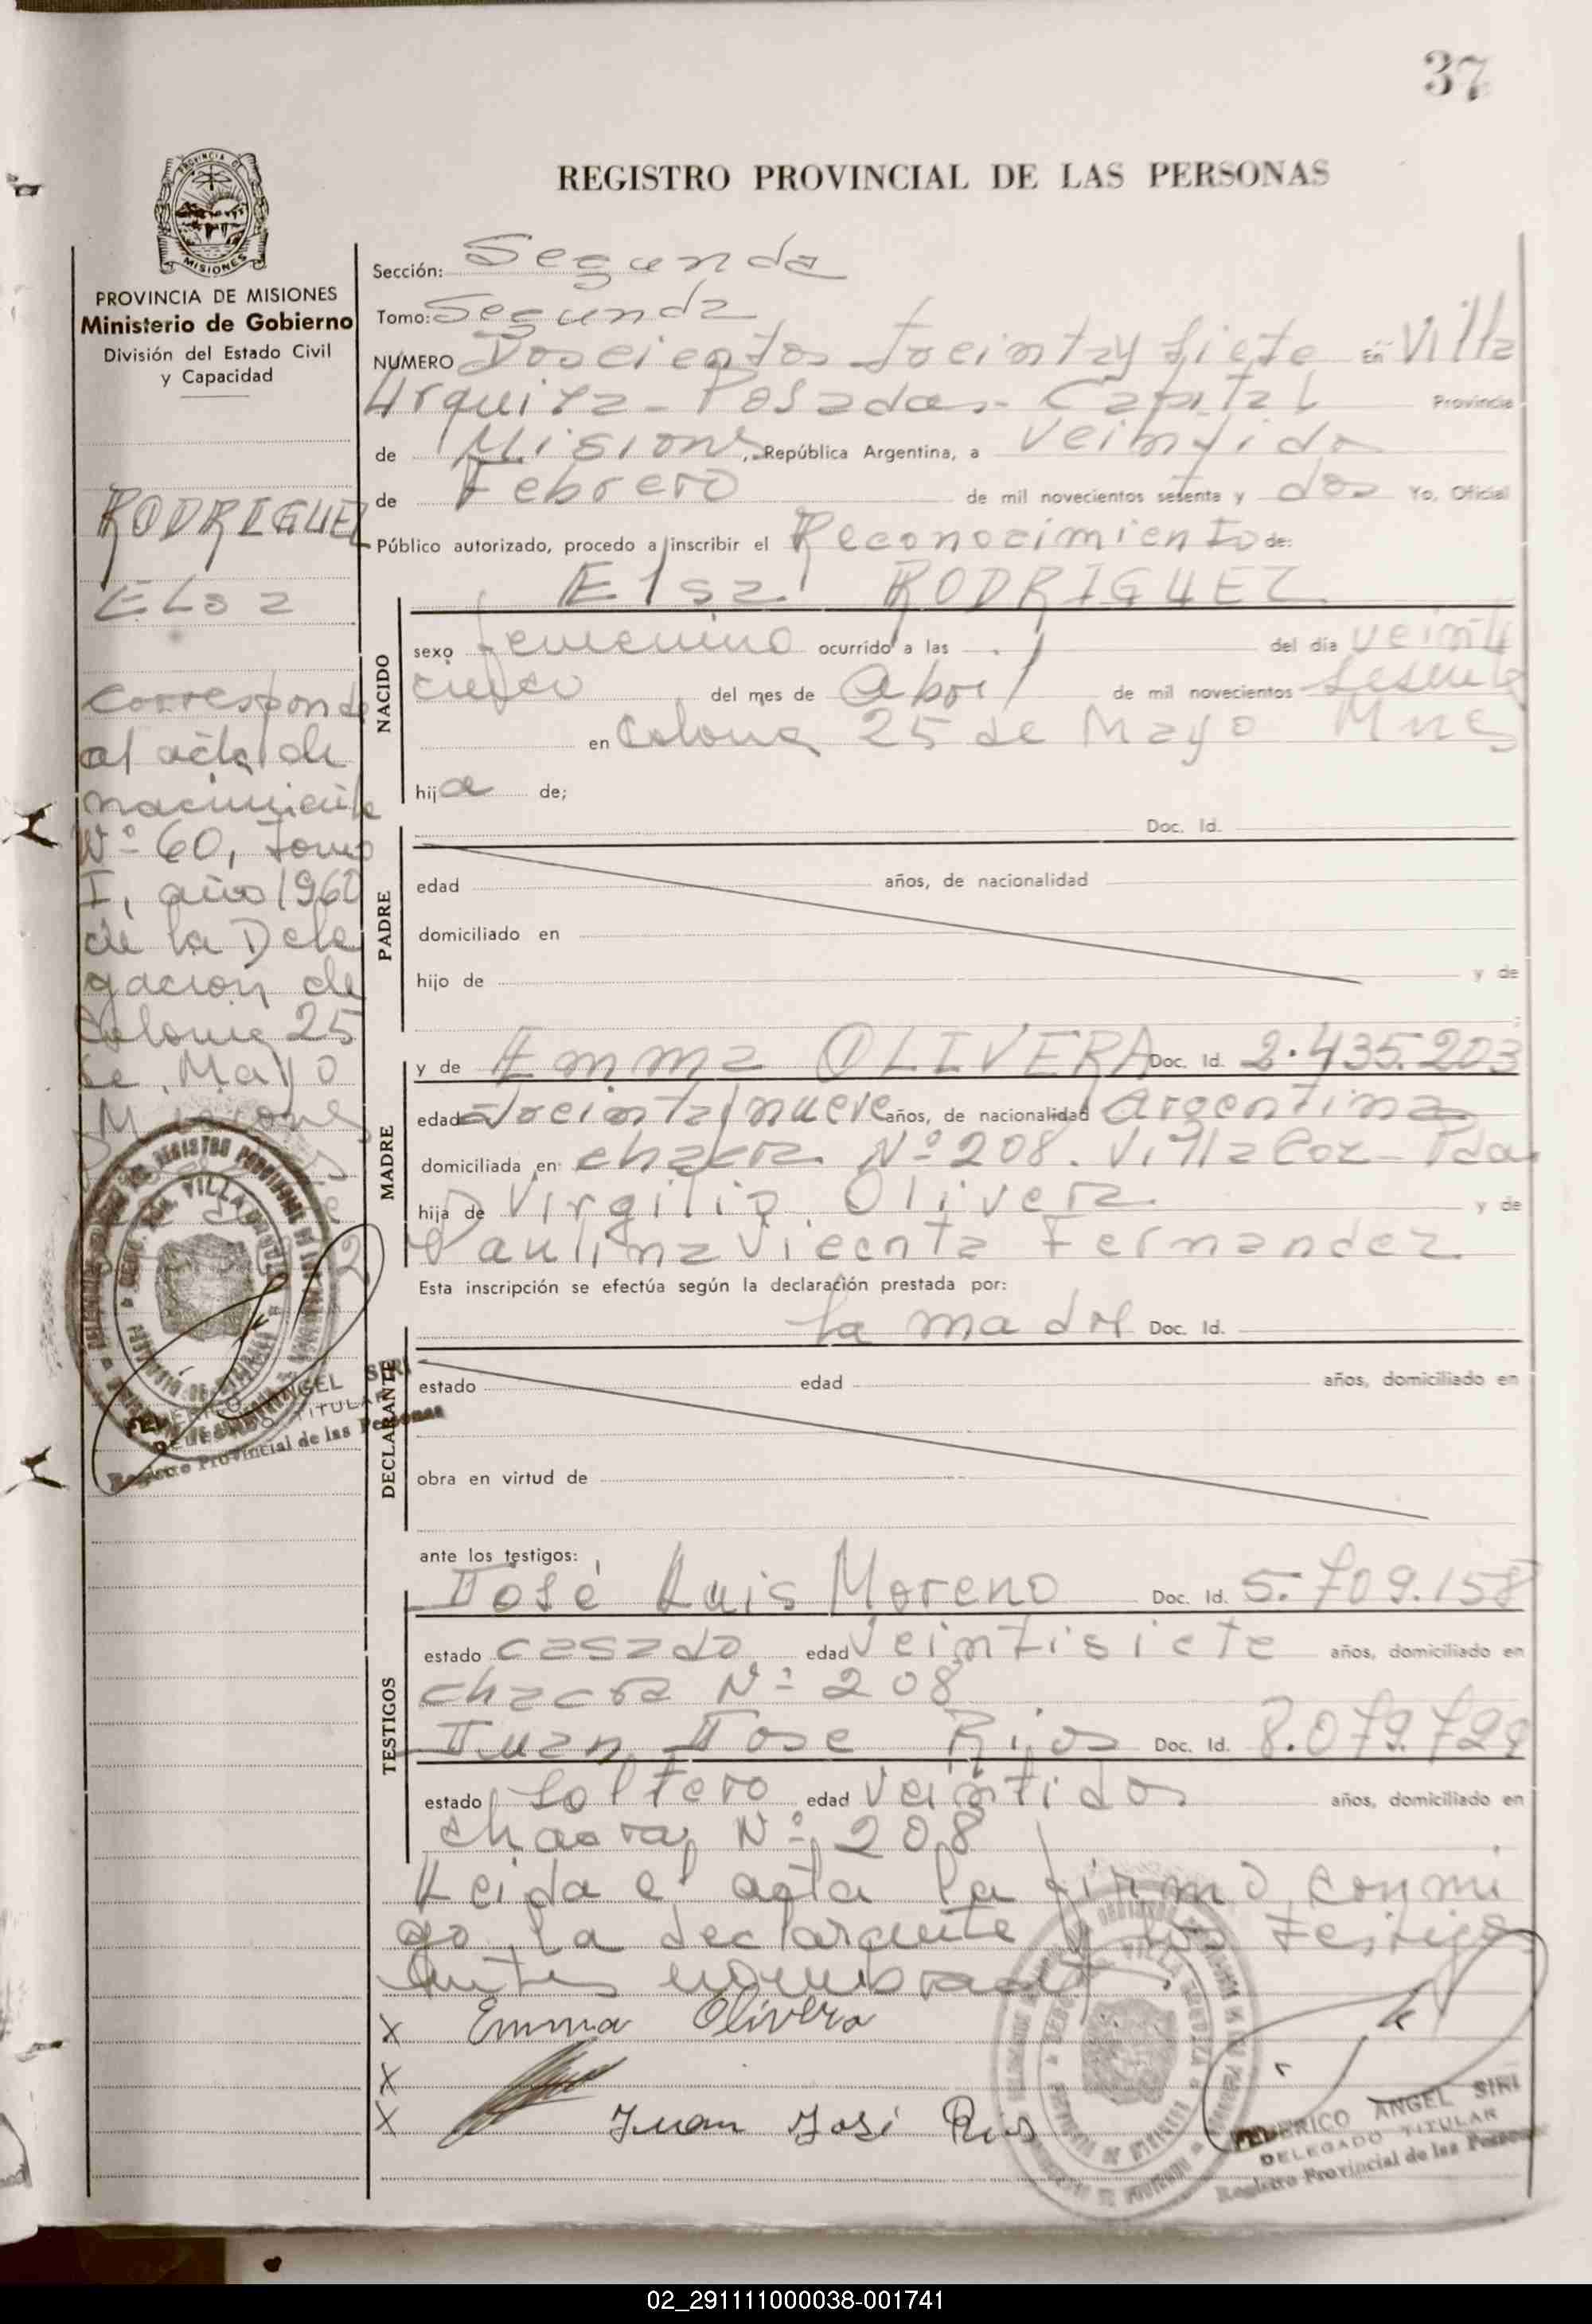 37
REGISTRO PROVINCIAL DE LAS PERSONAS
PROVINCIA DE MISIONES
PROVINCIA DE MISIONES
Ministerio de Gobierno
División del Estado Civil
y Capacidad
RODRIGUEZ
Elsa
Corresponde
al acta de
nacimiento
Nº 60, Tomo
I, año 1960
de la Dele
gación de
Colonia 25
de Mayo
Misiones
FEDERICO ANGEL SIRI
DELEGADO TITULAR
Registro Provincial de las Personas
Sección: Segunda
Tomo: Segunda
NUMERO Doscientos treinta y siete En Villa
Urquiza - Posadas - Capital Provincia
de Misiones, República Argentina, a veintidos
de Febrero de mil novecientos setenta y dos Yo, Oficial
Público autorizado, procedo a inscribir el Reconocimiento de:
Elsa RODRIGUEZ
NACIDO
sexo femenino ocurrido a las del día veinti
cinco del mes de Abril de mil novecientos sesenta
en Colonia 25 de Mayo Mnes
hija de;
PADRE
Doc. Id.
edad años, de nacionalidad
domiciliado en
hijo de y de
MADRE
y de Emma OLIVERA Doc. Id. 2.435.203
edad treinta y nueve años, de nacionalidad Argentina
domiciliada en: chacra Nº 208. Villa Coz - Pdas
hija de Virgilio Olivera y de
Paulina Vicenta Fernandez
Esta inscripción se efectúa según la declaración prestada por:
DECLARANTE
la madre Doc. Id.
estado edad años, domiciliado en
obra en virtud de
ante los testigos:
TESTIGOS
José Luis Moreno Doc. Id. 5.709.158
estado casado edad veintisiete años, domiciliado en
chacra Nº 208
Juan Jose Rios Doc. Id. 8.079.729
estado soltero edad veintidos años, domiciliado en
chacra Nº 208
Leida el acta la firmó conmi
go la declarante y los testigos
antes nombrados
x Emma Olivera
x
x Juan José Rios
FEDERICO ANGEL SIRI
DELEGADO TITULAR
Registro Provincial de las Personas
02_291111000038-001741